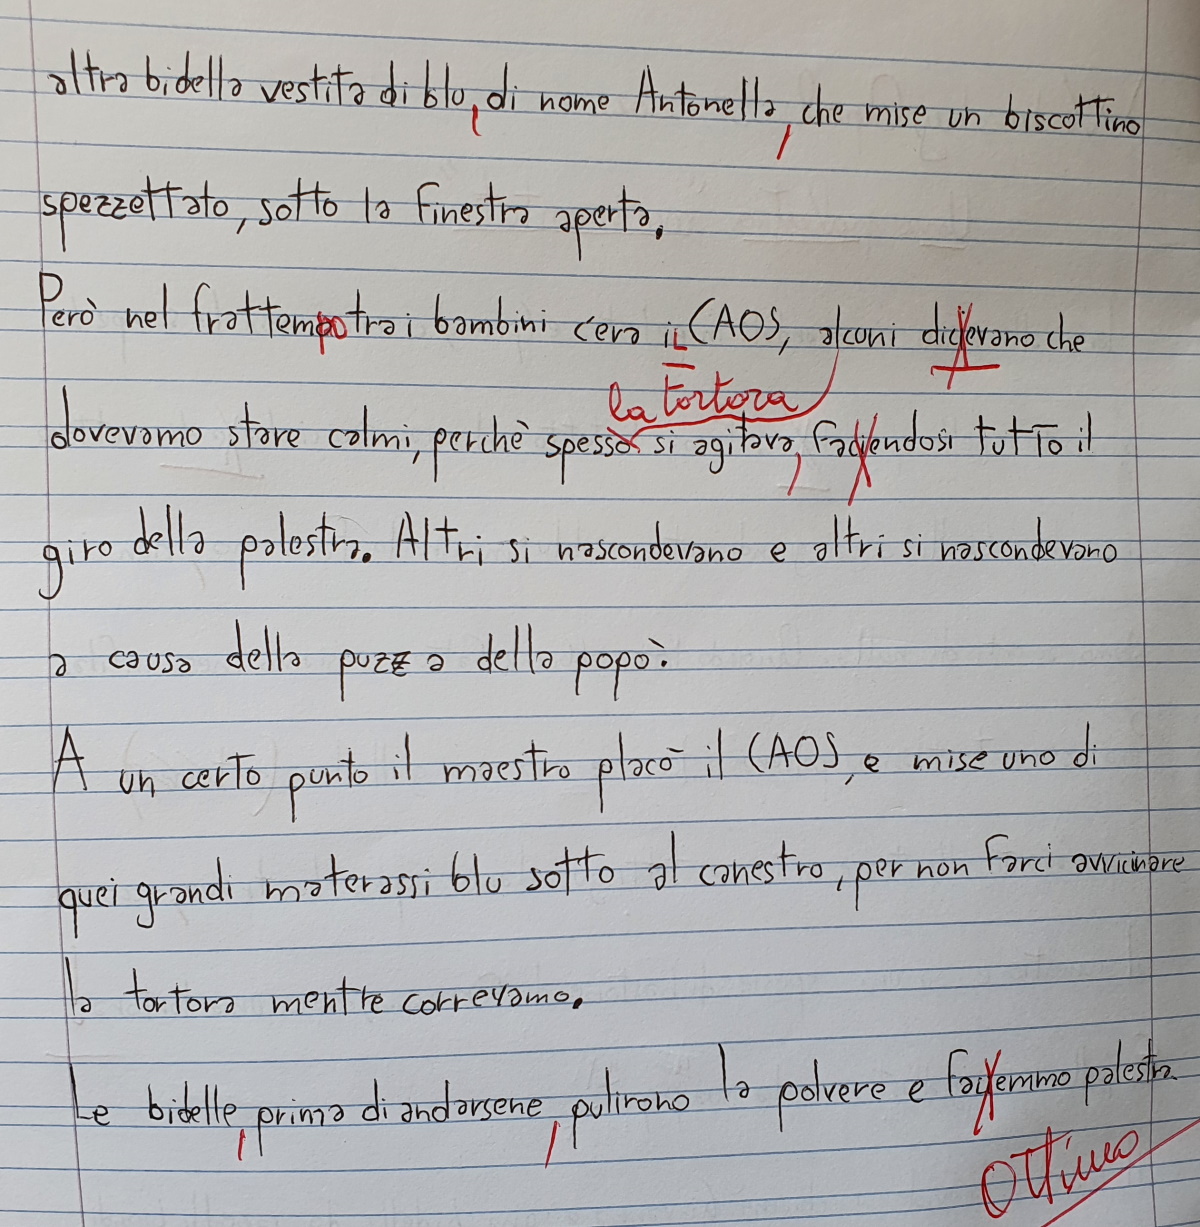 altra bidella vestita di blu, di nome Antonella, che mise un biscottino
spezzettato, sotto la finestra aperta.
Però nel frattempo tra i bambini c'era il CAOS, alcuni dicievano che
la tortora
dovevamo stare calmi, perchè spesso si agitava, faciendosi tutto il
giro della palestra. Altri si nascondevano e altri si nascondevano
a causa della puzza della popò.
A un certo punto il maestro placò il CAOS, e mise uno di
quei grandi materassi blu sotto al canestro, per non farci avvicinare
la tortora mentre correvamo.
Le bidelle, prima di andarsene, pulirono la polvere e faciemmo palestra.
Ottimo